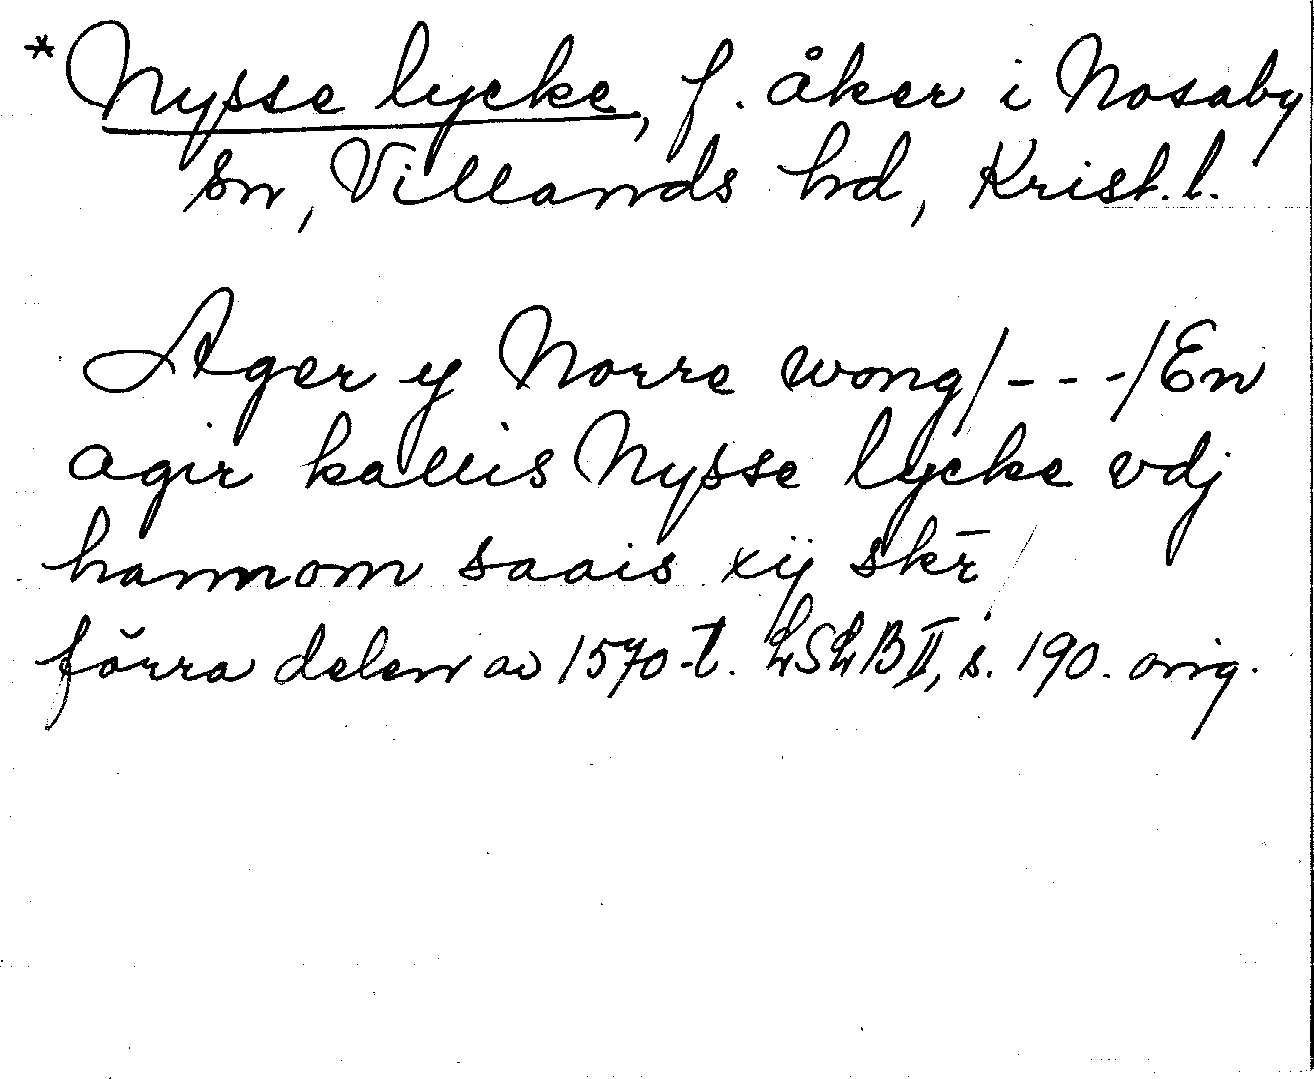 *Nysse lycke, f. åker i Nosaby
sn, Villands hd, Krist. l.
Ager y Norre wong/---/En
agir kallis Nysse lycke vdj
hannom saais xij skr̄
förra delen av 1570-t. LSLB II, s. 190. orig.